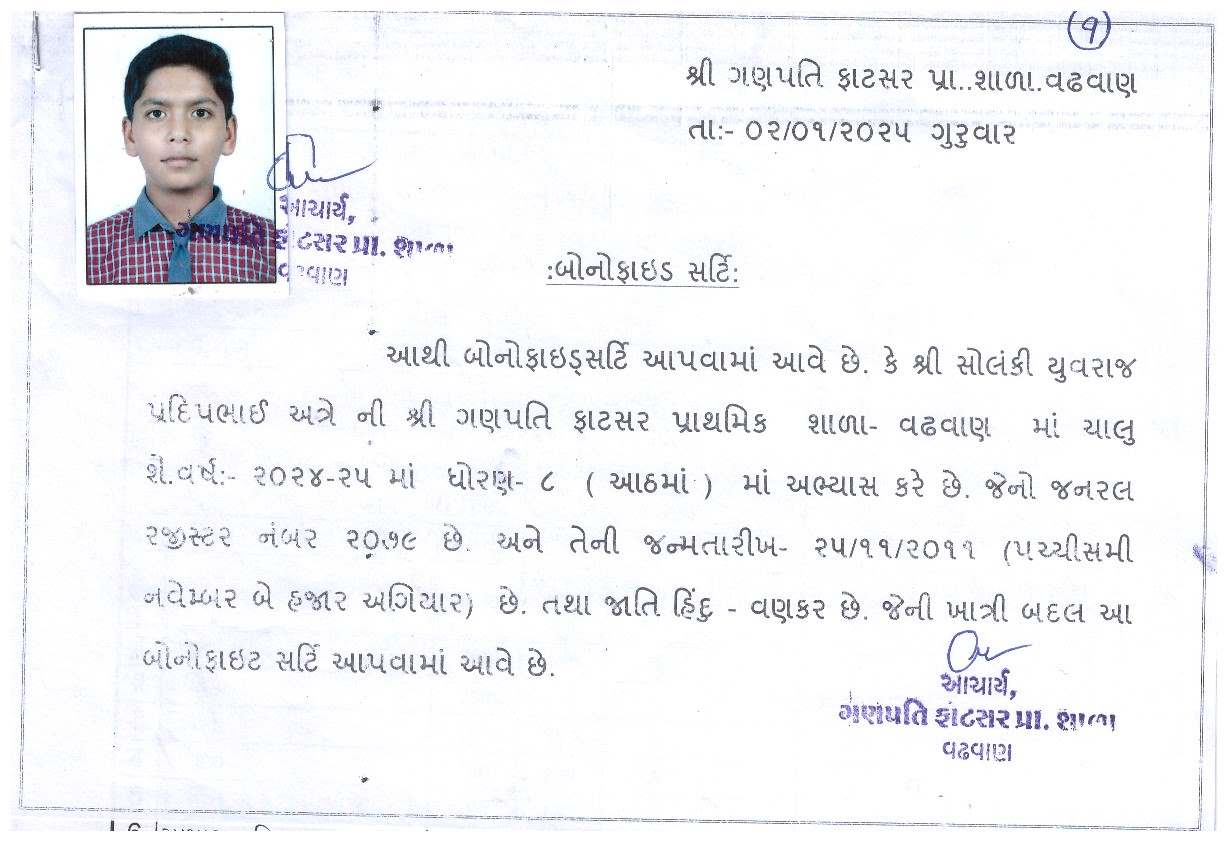 (૧)
શ્રી ગણપતિ ફાટસર પ્રા..શાળા.વઢવાણ
તાઃ- ૦૨/૦૧/૨૦૨૫ ગુરુવાર
આચાર્ય,
ગણપતિ ફાટસર પ્રા. શાળા
વઢવાણ
:બોનોફાઇડ સર્ટિ:
આથી બોનોફાઇડ્સર્ટિ આપવામાં આવે છે. કે શ્રી સોલંકી યુવરાજ
પ્રદિપભાઈ અત્રે ની શ્રી ગણપતિ ફાટસર પ્રાથમિક શાળા- વઢવાણ માં ચાલુ
શૈ.વર્ષઃ- ૨૦૨૪-૨૫ માં ધોરણ- ૮ ( આઠમાં ) માં અભ્યાસ કરે છે. જેનો જનરલ
રજીસ્ટર નંબર ૨૦૭૯ છે. અને તેની જન્મતારીખ- ૨૫/૧૧/૨૦૧૧ (પચ્ચીસમી
નવેમ્બર બે હજાર અગિયાર) છે. તથા જાતિ હિંદુ - વણકર છે. જેની ખાત્રી બદલ આ
બોનોફાઇટ સર્ટિ આપવામાં આવે છે.
આચાર્ય,
ગણપતિ ફાટસર પ્રા. શાળા
વઢવાણ